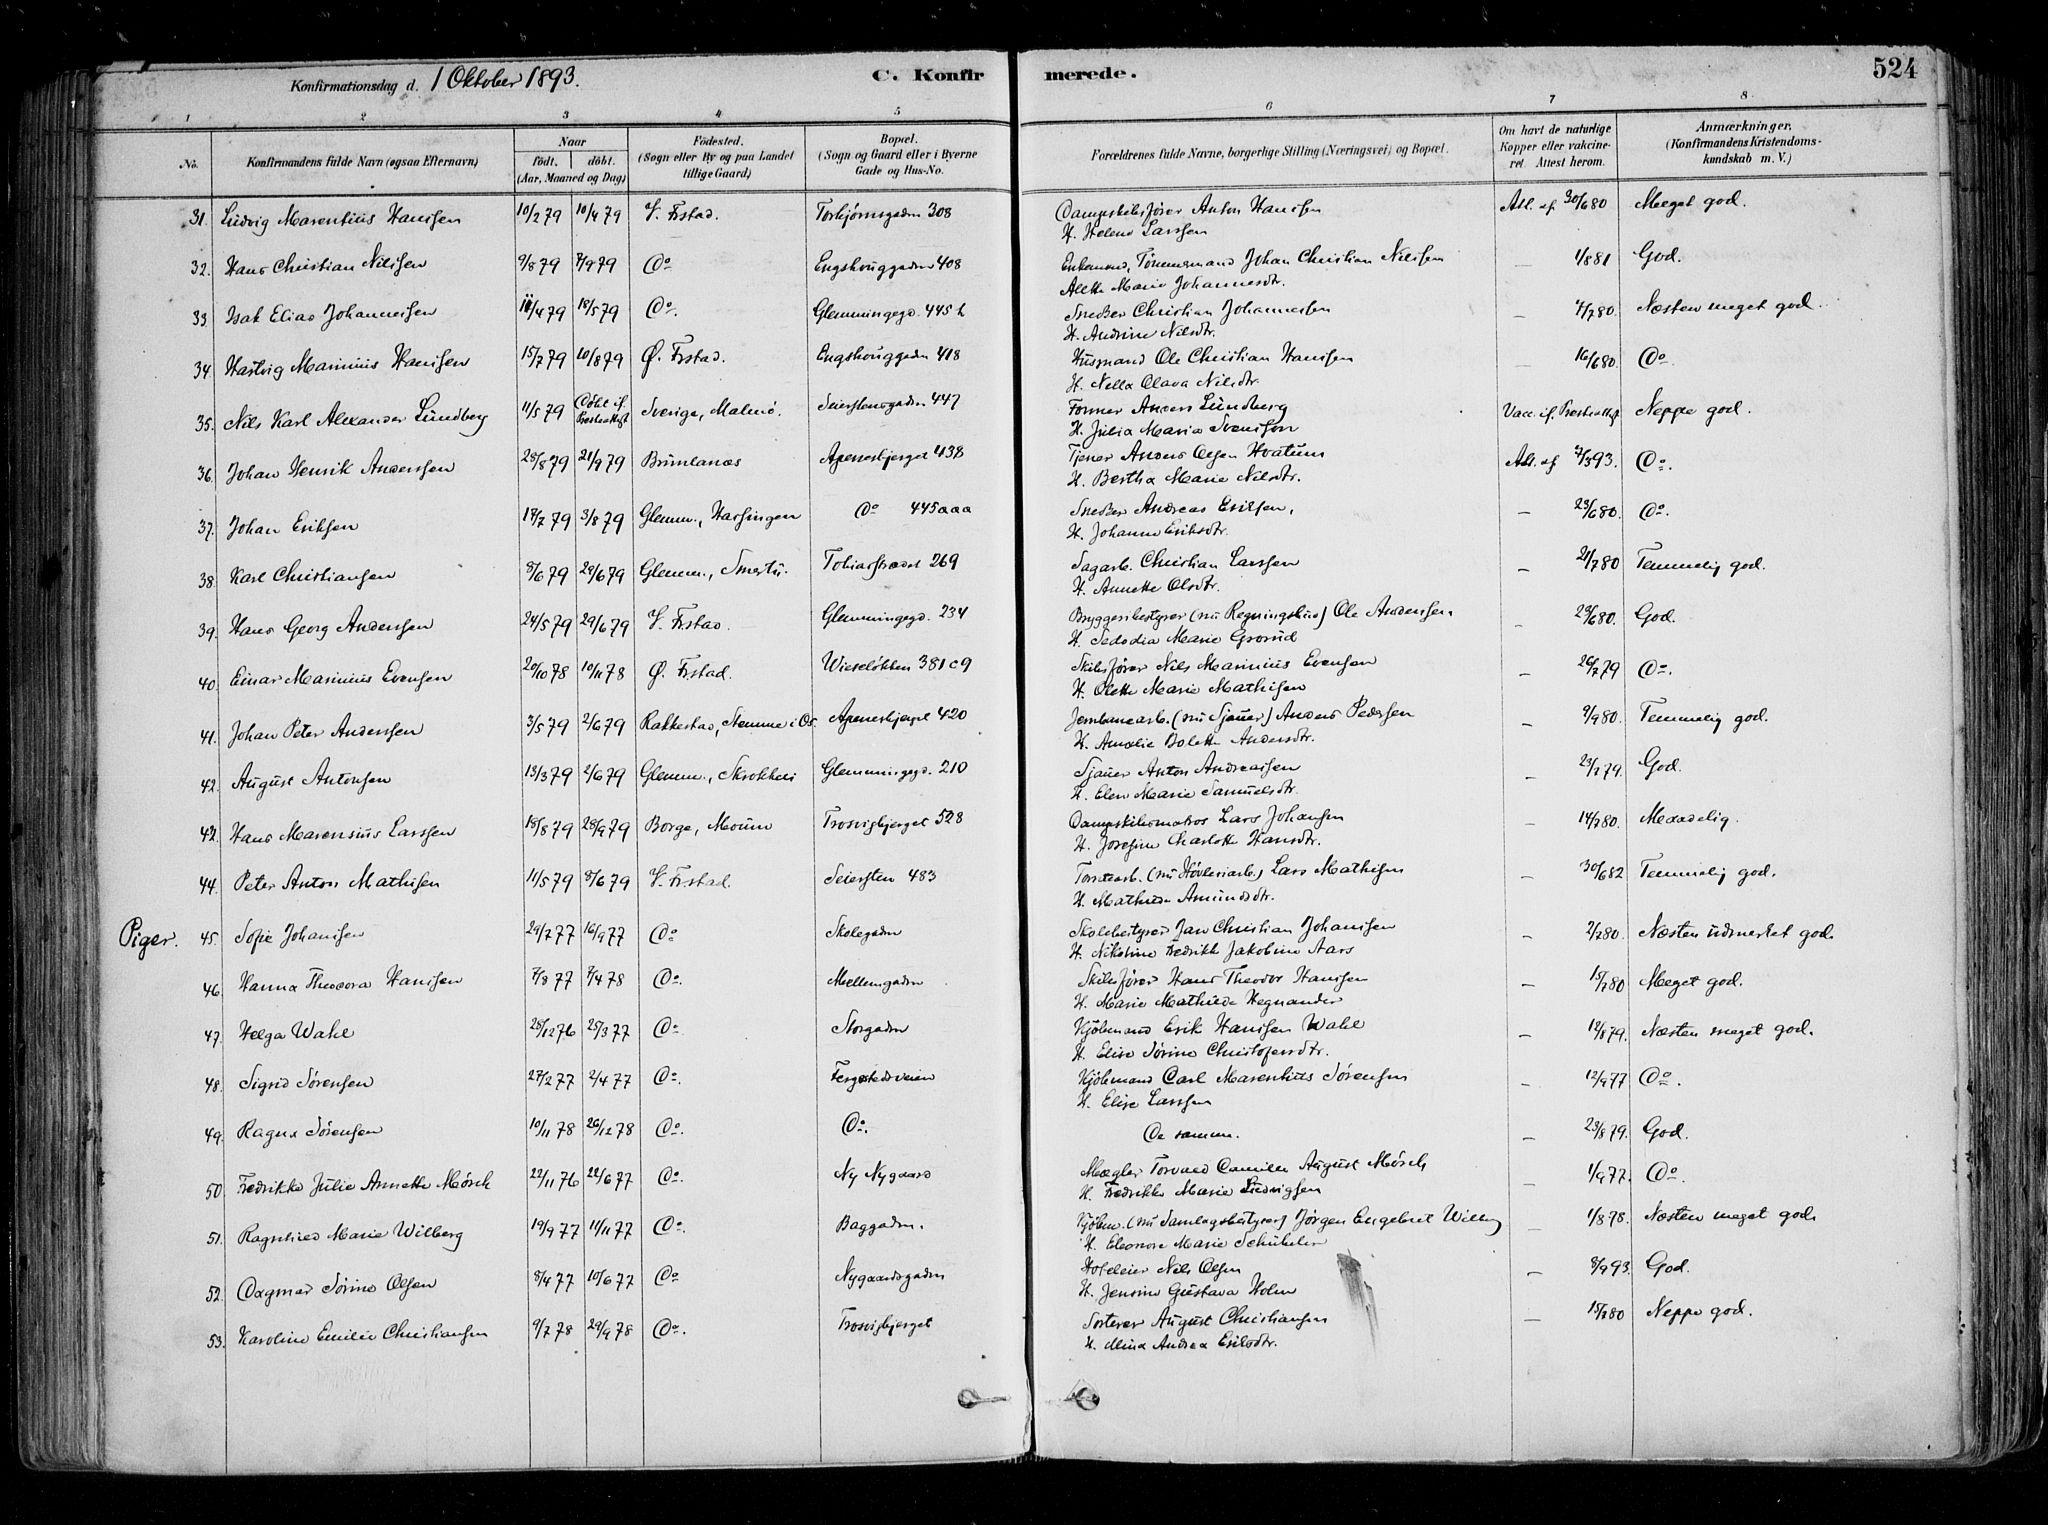 Konfirmationsdag d. 1 Oktober 1893. C. Konfirmerede. 524
1 2 3 4 5 6 7 8
No. Konfirmandens fulde Navn (ogsaa Efternavn) Naar født, døbt. (Aar, Maaned og Dag) Fødested. (Sogn eller By og paa Landet tillige Gaard) Bopæl. (Sogn og Gaard eller i Byerne Gade og Hus-No. Forældrenes fulde Navne, borgerlige Stilling (Næringsvei) og Bopæl. Om havt de naturlige Kopper eller vakcineret Attest herom. Anmærkninger. (Konfirmandens Kristendomskundskab m. V.)
31. Ludvig Marentius Hanssen 10/2 79 10/4 79 V. Frstad. Torbjørnsgaden 308 Dampskibsfører Anton Hanssen Att. af 30/6 80 Meget god.
H. Helene Larssen
32. Hans Christian Nilssen 9/8 79 7/9 79 Do Engehouggaden 408 Enkemand, Tømmermand Johan Christian Nilssen — 4/8 81 God.
Alette Marie Johannesdtr.
33. Isak Elias Johannessen 11/4 79 18/5 79 Do. Glemmingegd. 445 h Snedker Christian Johannessen — 7/7 80. Næsten meget god.
H. Andrine Nilsdtr.
34. Hartvig Marinius Hanssen 15/7 79 10/8 79 Ø. Frstad. Engehouggaden 418 Husmand Ole Christian Hanssen — 16/6 80. Do
H. Nella Olava Nilsdtr.
35. Nils Karl Alexander Lundberg 11/5 79 Døbt if. Presteattest Sverige, Malmø. Seierstensgaden 447 Former Anders Lundberg Vacc. if. Presteattest Neppe god.
H. Julia Maria Svensson
36. Johan Henrik Anderssen 28/8 79 21/9 79 Brunlanæs Apenesbjerget 438 Tjener Anders Olsen Hvatum Att. af 2/3 93. Do.
H. Bertha Marie Nilsdtr.
37. Johan Eriksen 18/7 79 3/8 79 Glemm., Hassingen Do 445aaa Snedker Andreas Eriksen, — 23/6 80. Do.
H. Johanne Eriksdtr.
38. Karl Christiansen 8/6 79 29/6 79 Glemm., Smertu. Tobiasstrædet 269 Sagarb. Christian Larssen — 21/7 80 Temmelig god.
H. Annette Olsdtr.
39. Hans Georg Anderssen 24/5 79 29/6 79 V. Frstad. Glemmingegd. 234 Bryggeribestyrer (nu Regningsbud) Ole Anderssen. — 29/6 80. God.
H. Sedodia Marie Grorud
40. Einar Marinius Evensen 20/10 78 10/11 78 Ø. Frstad. Wieseløkken 381 c 9 Skibsfører Nils Marinius Evensen — 26/7 79 Do.
H. Olette Marie Mathisen
41. Johan Peter Anderssen 3/5 79 2/6 79 Rakkestad, Stemme i Os. Apenesbjerget 420 Jernbanearb. (nu Sjauer) Anders Pedersen — 9/9 80. Temmelig god.
H. Amalie Bolette Andersdtr.
42. August Antonsen 13/3 79 2/6 79 Glemm., Glemmingegd. 210 Sjauer Anton Andreassen — 23/7 79. God.
H. Elen Marie Samuelsdtr.
42. Hans Marensius Larssen 18/8 79 28/9 79 Borge, Moum Trosvigbjerget 528 Dampskibsmatros Lars Johansen — 14/7 80. Maadelig.
H. Josefine Charlotte Hansdtr.
44. Peter Anton Mathisen 11/5 79 8/6 79 V. Frstad. Seiersten 483 (nu Høvleriarb.) Lars Mathisen — 30/6 82 Temmelig god.
H. Mathilde Amundsdtr.
Piger. 45. Sofie Johanssen 29/7 77 16/9 77 Do Skolegaden Skolebestyrer Jan Christian Johanssen — 2/7 80. Næsten udmerket god.
H. Nikoline Fredrikke Jakobine Aars
46. Hanna Theodora Hanssen 7/8 77 7/4 78 Do. Mellemgaden Skibsfører Hans Theodor Hanssen — 15/7 80 Meget god.
H. Marie Mathilde Hegnander
47. Helga Wahl 28/12 76 25/3 77 Do. Storgaden Kjøbmand Erik Hanssen Wahl — 12/8 79. Næsten meget god.
H. Elise Sørine Christofersdtr.
48. Sigrid Sørensen 27/2 77 2/4 77 Do. Fergestedsveien Kjøbmand Carl Marentius Sørensen — 12/9 77 Do.
H. Elise Larssen
49. Ragna Sørensen 10/11 78 26/12 78 Do. Do. De samme. — 23/8 79. God.
50 Fredrikke Julie Annette Mørch 22/11 76 22/6 77 Do. Ny Nygaard Mægler Torvald Camillo August Mørch — 1/9 77. Do.
H. Fredrikke Marie Ludvigsen
51. Ragnhild Marie Wilberg 19/9 77 11/11 77 Do. Baggaden. Kjøbm. (nu Samlagsbestyrer) Jørgen Engebret Wilberg — 1/8 78. Næsten meget god.
H. Eleonore Marie Schübeler
52. Dagmar Sørine Olsen 8/4 77 10/6 77 Do Nygaardsgaden Hofeleier Nils Olsen — 8/9 93. God.
H. Jensine Gustava Holm
53. Karoline Emilie Christiansen 9/7 78 29/9 78 Do. Trosvigbjerget Sorterer August Christiansen — 15/7 80 Neppe god.
H. Mina Andrea Eriksdtr.